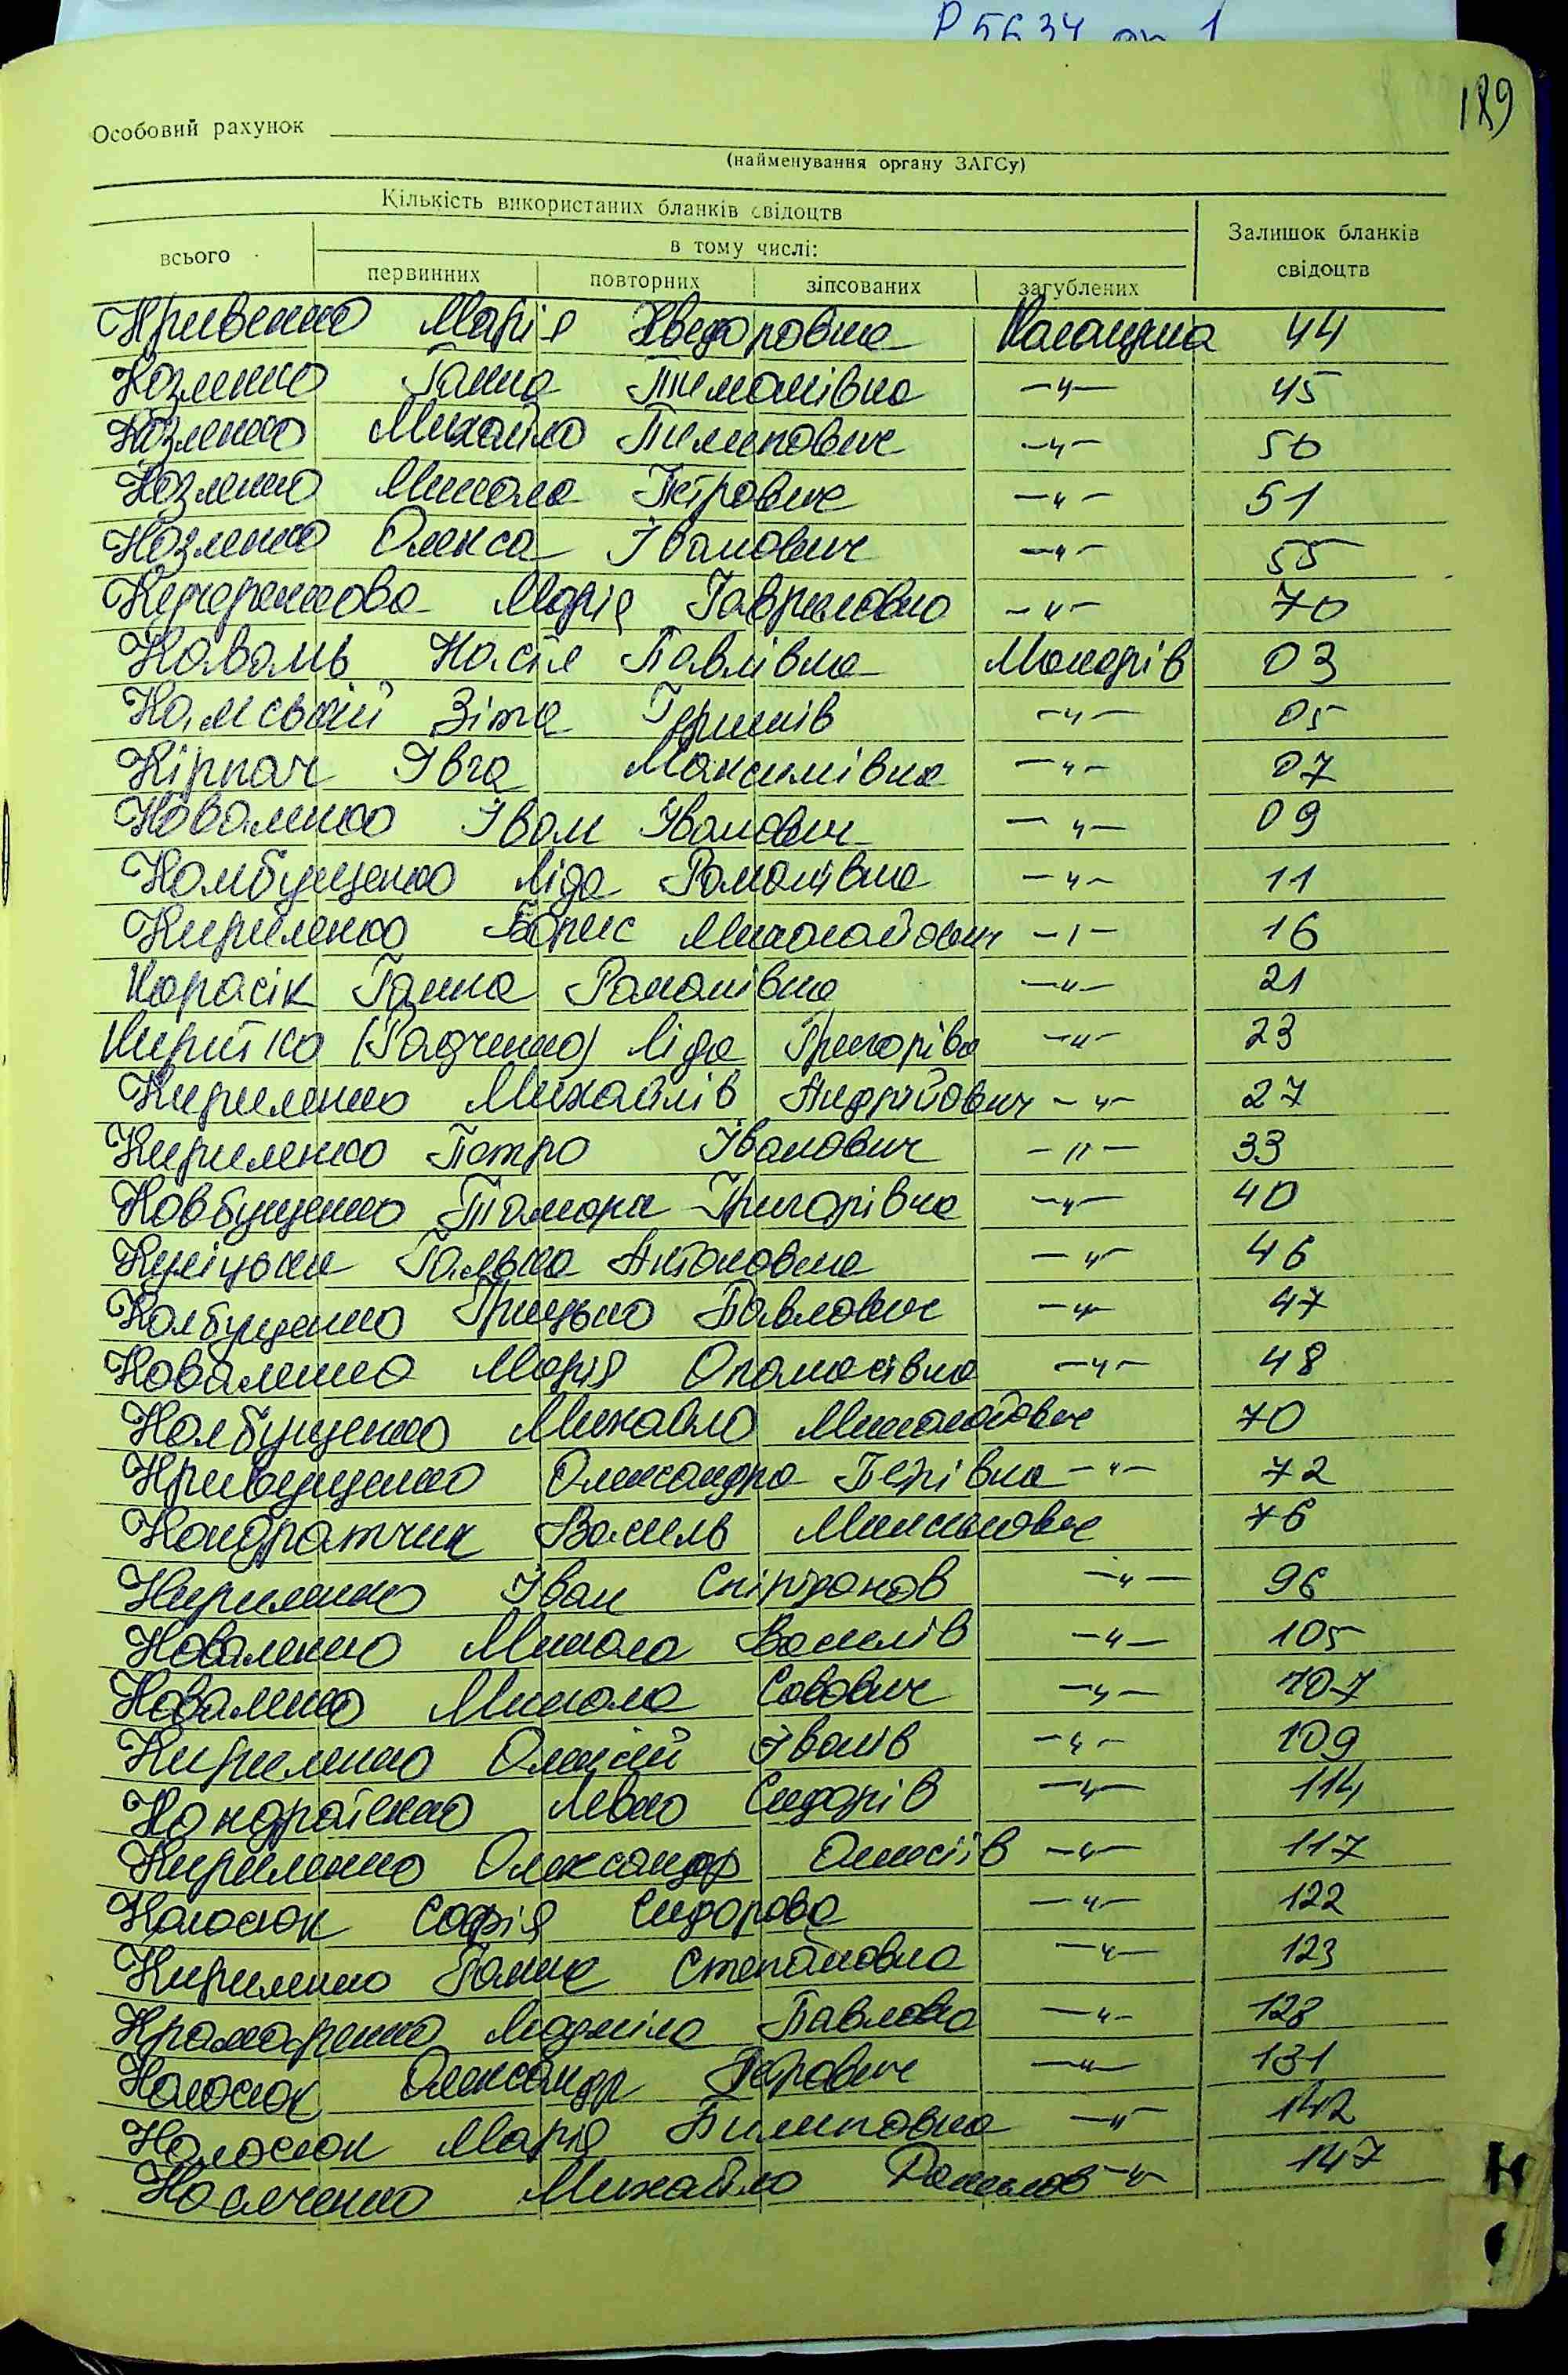 Р 5634 оп 1
189
Особовий рахунок
(найменування органу ЗАГСу)
Кількість використаних бланків свідоцтв
Залишок бланків свідоцтв
всього
в тому числі:
первинних повторних зіпсованих загублених
Кривенко Марія Хведоровна 44
Козленко Ганна Тиманівна -"- 45
Козленко Михайло Пилипович -"- 50
Козленко Микола Петрович -"- 51
Козленко Олекса Іванович -"- 55
Марія Гавриловна -"- 70
Коваль Настя Павлівна Макарів 03
Зіна -"- 05
Кірпач Івга Максимівна -"- 07
Коваленко Іван Іванович -"- 09
Колбущенко Ліда Романівна -"- 11
Кириленко Борис Миколайович -"- 16
Карасік Ганна Романівна -"- 21
Кирійко (Радченко) Ліда Григорівна -"- 23
Кириленко Михайлів Андрійович -"- 27
Кириленко Петро Іванович -"- 33
Ковбущенко Тамара Григорівна -"- 40
Галька Антоновна -"- 46
Колбущенко Грицько Павлович -"- 47
Коваленко Марія Опанасівна -"- 48
Колбущенко Михайло Миколайович 70
Кривущенко Олександра Петрівна -"- 72
Кондратчик Василь 76
Кириленко Іван Спірідонов -"- 96
Коваленко Микола Василів -"- 105
Коваленко Микола Савович -"- 107
Кириленко Олексій Іванів -"- 109
Кондратенко Левко Сидорів -"- 114
Кириленко Олександр -"- 117
Колосюк Софія Сидорова -"- 122
Кириленко Ганна Степановна -"- 123
Крамаренко Людміла Павловна -"- 128
Колосюк Олександр Петрович -"- 131
Колосюк Марія Пилиповна -"- 142
Михайло -"- 147
К